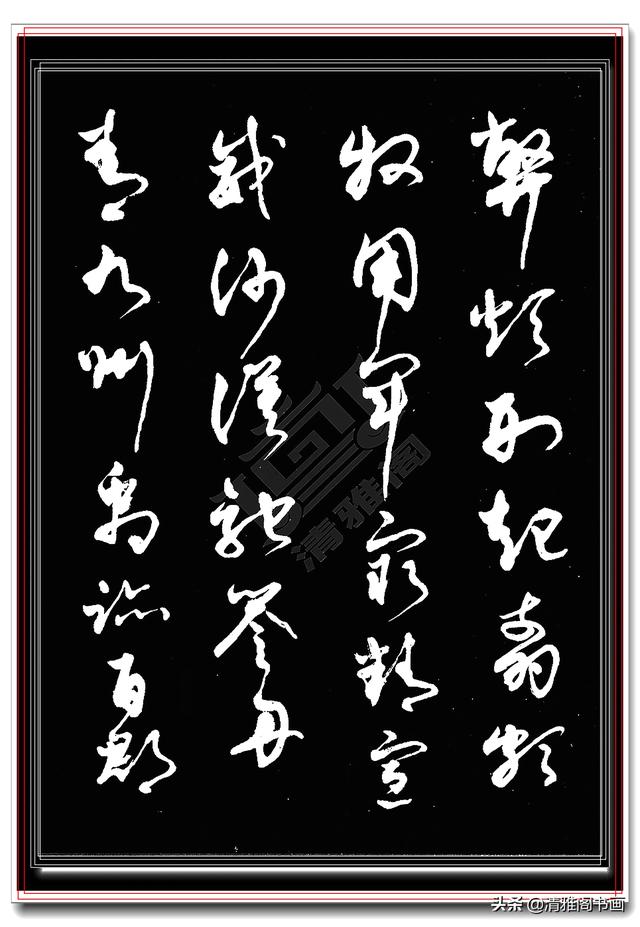 弊煩刑起翦頗
牧用軍最精宣
威沙漠馳譽丹
青九州禹跡百郡
清雅阁
头条 @清雅阁书画